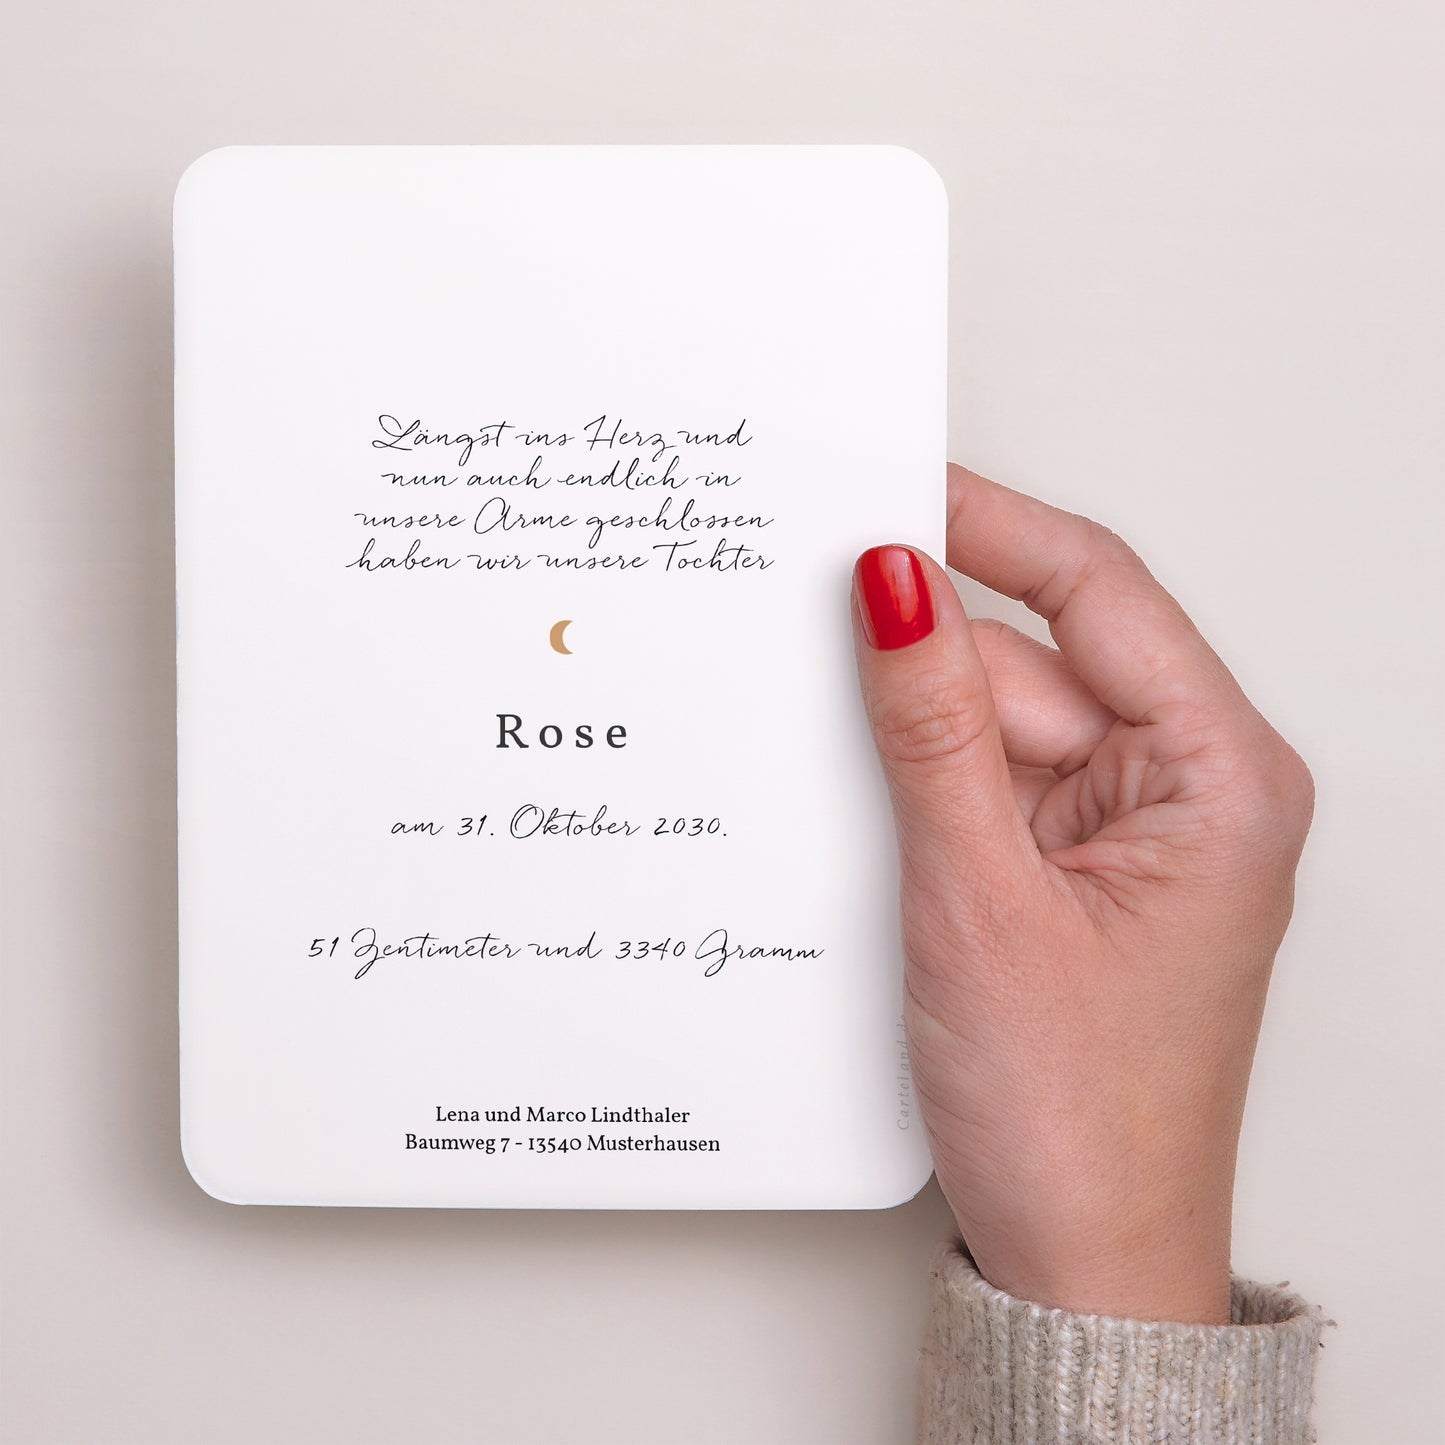 Längst ins Herz und
nun auch endlich in
unsere Arme geschlossen
haben wir unsere Tochter
Rose
am 31. Oktober 2030.
51 Zentimeter und 3340 Gramm
Lena und Marco Lindthaler
Baumweg 7 - 13540 Musterhausen
Carteland.de